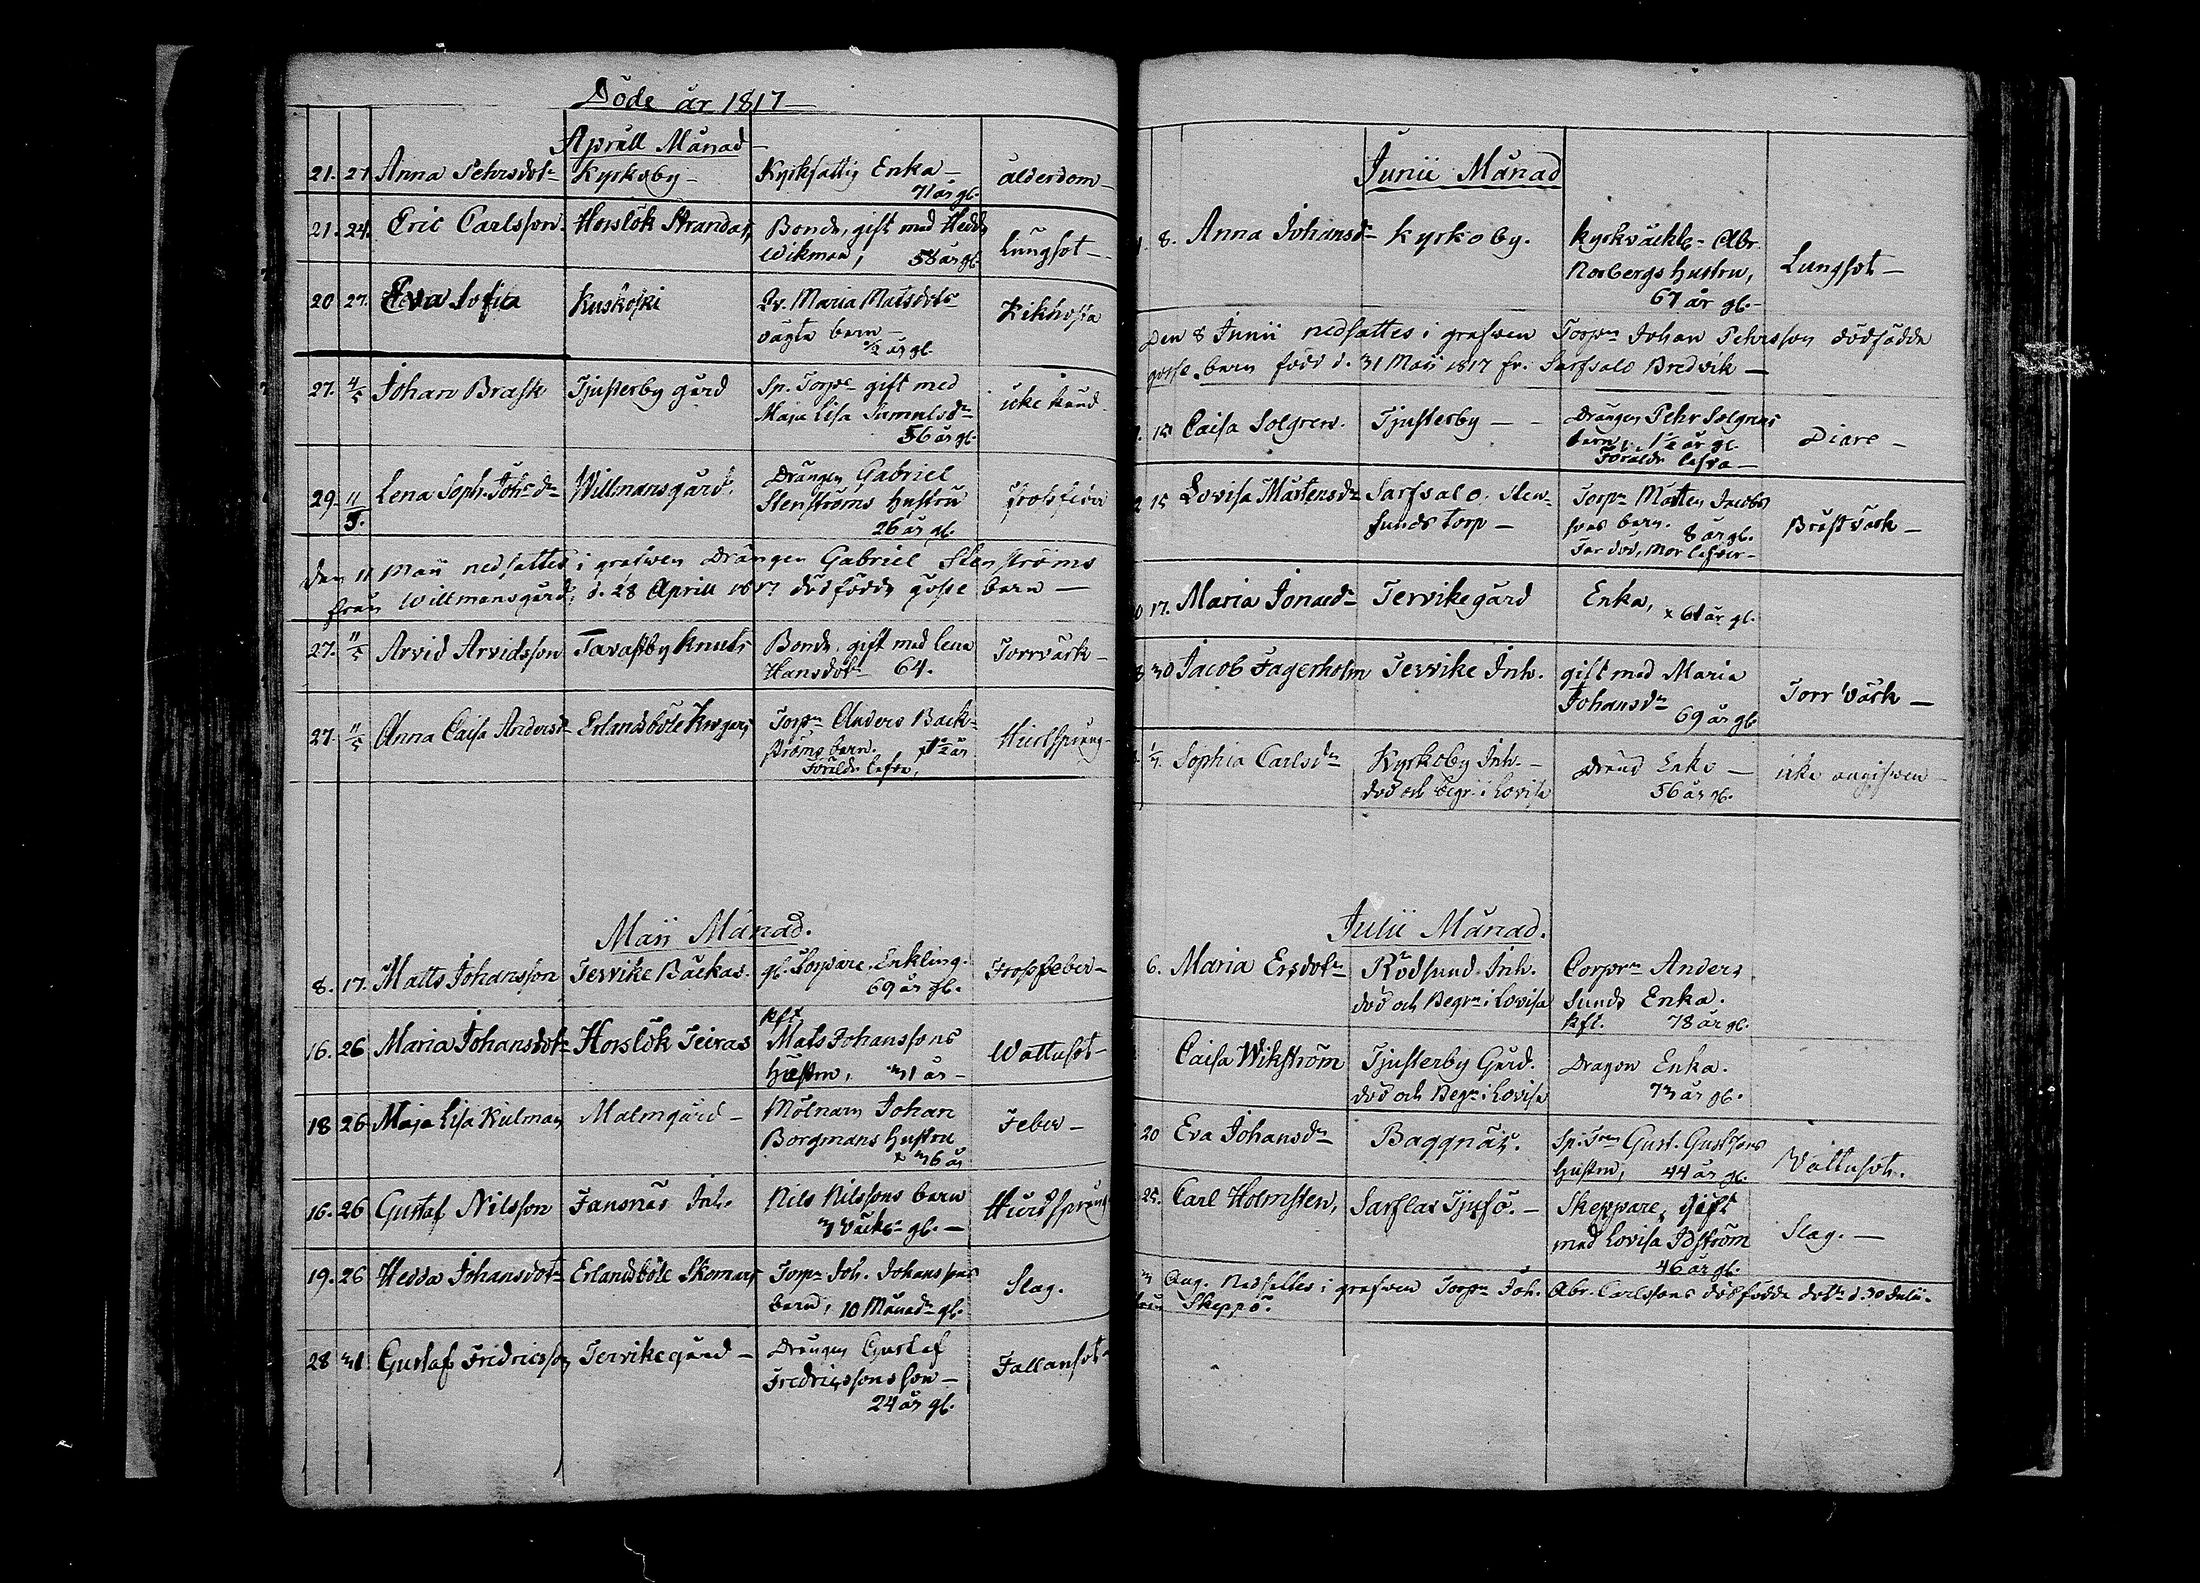 Döde år 1817
Aprill Månad
21. 27 Anna Pehrsdotr Kyrkoby Kyrkfattig Enka 71 år gl. ålderdom
21. 24. Eric Carlsson. Horslök Strandas, Bonde, gift med Hedd
Wikman, 58 år gl. Lungsot
20 27. Eva Sofia Kuskoski Qv. Maria Matsdotr
oägta barn 1/2 år gl. Kikhosta
27. 4/5 Johan Brask Tjusterby gård Sp. Torpe gift med
Maja Lisa Samuelsdr
56 år gl. icke känd
29. 11/5. Lena Soph. Johsdr Willmansgård. Drängen Gabriel
Stenströms Hustru
26 år gl. frossfeber
Den 11 Maii nedsattes i grafwen Drängen Gabriel Stenströms
från Willmansgård, d. 28 Aprill 1817 dödfödde gosse barn
27. 11/5 Arvid Arvidsson Tavastby Knuts Bonde, gift med Lena
Hansdotr 64. Torrvärk
27. 11/5 Anna Caisa Andersdr Erlandsböle Torpn Anders Back-
ströms barn. 1 1/2 år
Föräldr lefva, Hurtsprång
Maii Månad.
8. 17. Matts Johansson Tervike Backas. gl. Torpare. Enkling.
69 år gl. Frossfeber
16. 26 Maria Johansdotr Horslök Teiras kft
Mats Johanssons
Hustru, 31 år Wattusot
18 26 Maja Lisa Kulman Malmgård Mölnarn Johan
Borgmans Hustru
x 36 år Feber
16. 26 Gustaf Nilsson Fansnäs Inh. Nils Nilssons barn
3 Veckr gl. Hurdsprång
19. 26 Hedda Johansdotr Erlandsböle Skomars Torpn Joh. Johanssons
barn, 10 Månadr gl. Slag.
28 31 Gustaf Fredricsson Tervikegård Drängen Gustaf
Fredricssons son
24 år gl. Fallansot
Junii Månad
8. Anna Johansdr Kyrkoby. Kyrkväcktr Abr.
Norbergs Hustru,
67 år gl. Lungsot
Den 8 Junii nedsattes i grafwen Torpn Johan Pehrsson dödfödde
gosse barn född d. 31 Maii 1817 fr. Sarfsalö Bredvik
15 Caisa Solgren. Tjusterby Drängen Pehr Solgrens
barn, 1 1/2 år gl.
Föräldr lefva Diare
2 15 Lovisa Mårtensdr Sarfsalo. Sten-
sunds torp Torpn Mårten Jacobs
sons barn. 8 år gl.
Far död, Mor lefver Bröstvärk
17. Maria Jonaedr Tervikegård Enka, x 61 år gl.
8 30 Jacob Fagerholm Tervike Inh. gift med Maria
Johansdr 69 år gl. Torr värk
1/7. Sophia Carlsdr Kyrkoby Inh.
död och begr. i Lovisa Dräng Enka
56 år gl. icke angifven
Julii Månad.
6. Maria Ersdotr Rödsund Inh.
död och Begrn i Lovisa Corprn Anders
Sunds Enka.
kft. 78 år gl.
Caisa Wikström Tjusterby Gård.
död och Begrn i Lovisa Dragon Enka.
73 år gl.
20 Eva Johansdr Baggnäs. Sp. Torn Gust. Gustfsons
Hustru, 44 år gl. Vattusot.
25. Carl Holmsten, Sarflax Tjusö. Skeppare, gift
med Lovisa Idström
46 år gl. Slag.
3 Aug. Nedsattes i grafwen Torpn Joh. Abr. Carlssons dödfödde dotr d. 30 Julii.
från Skeppö.